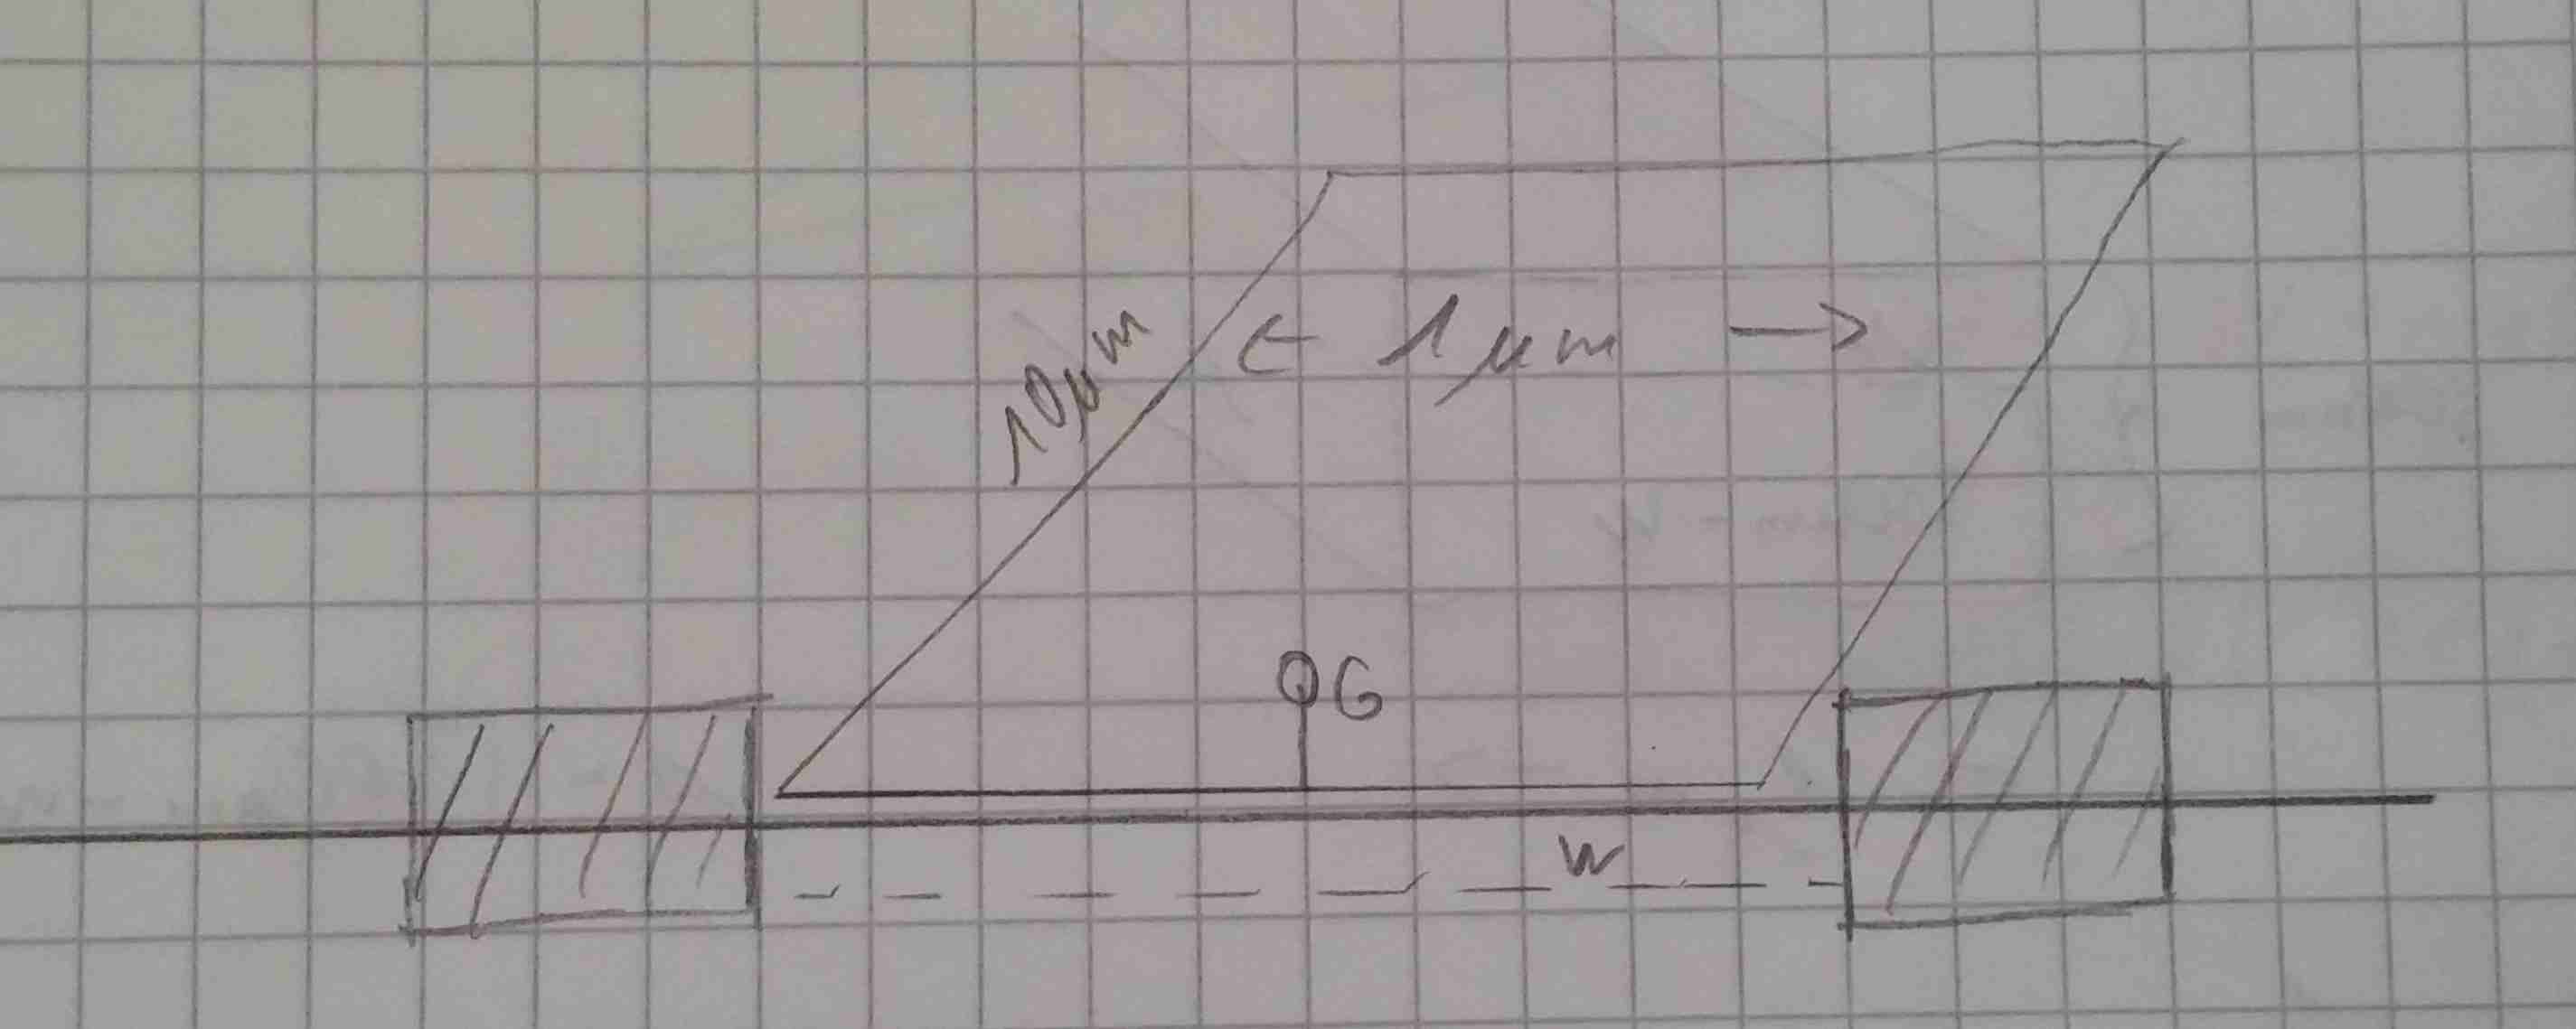 10μm
← 1 μm →
G
W